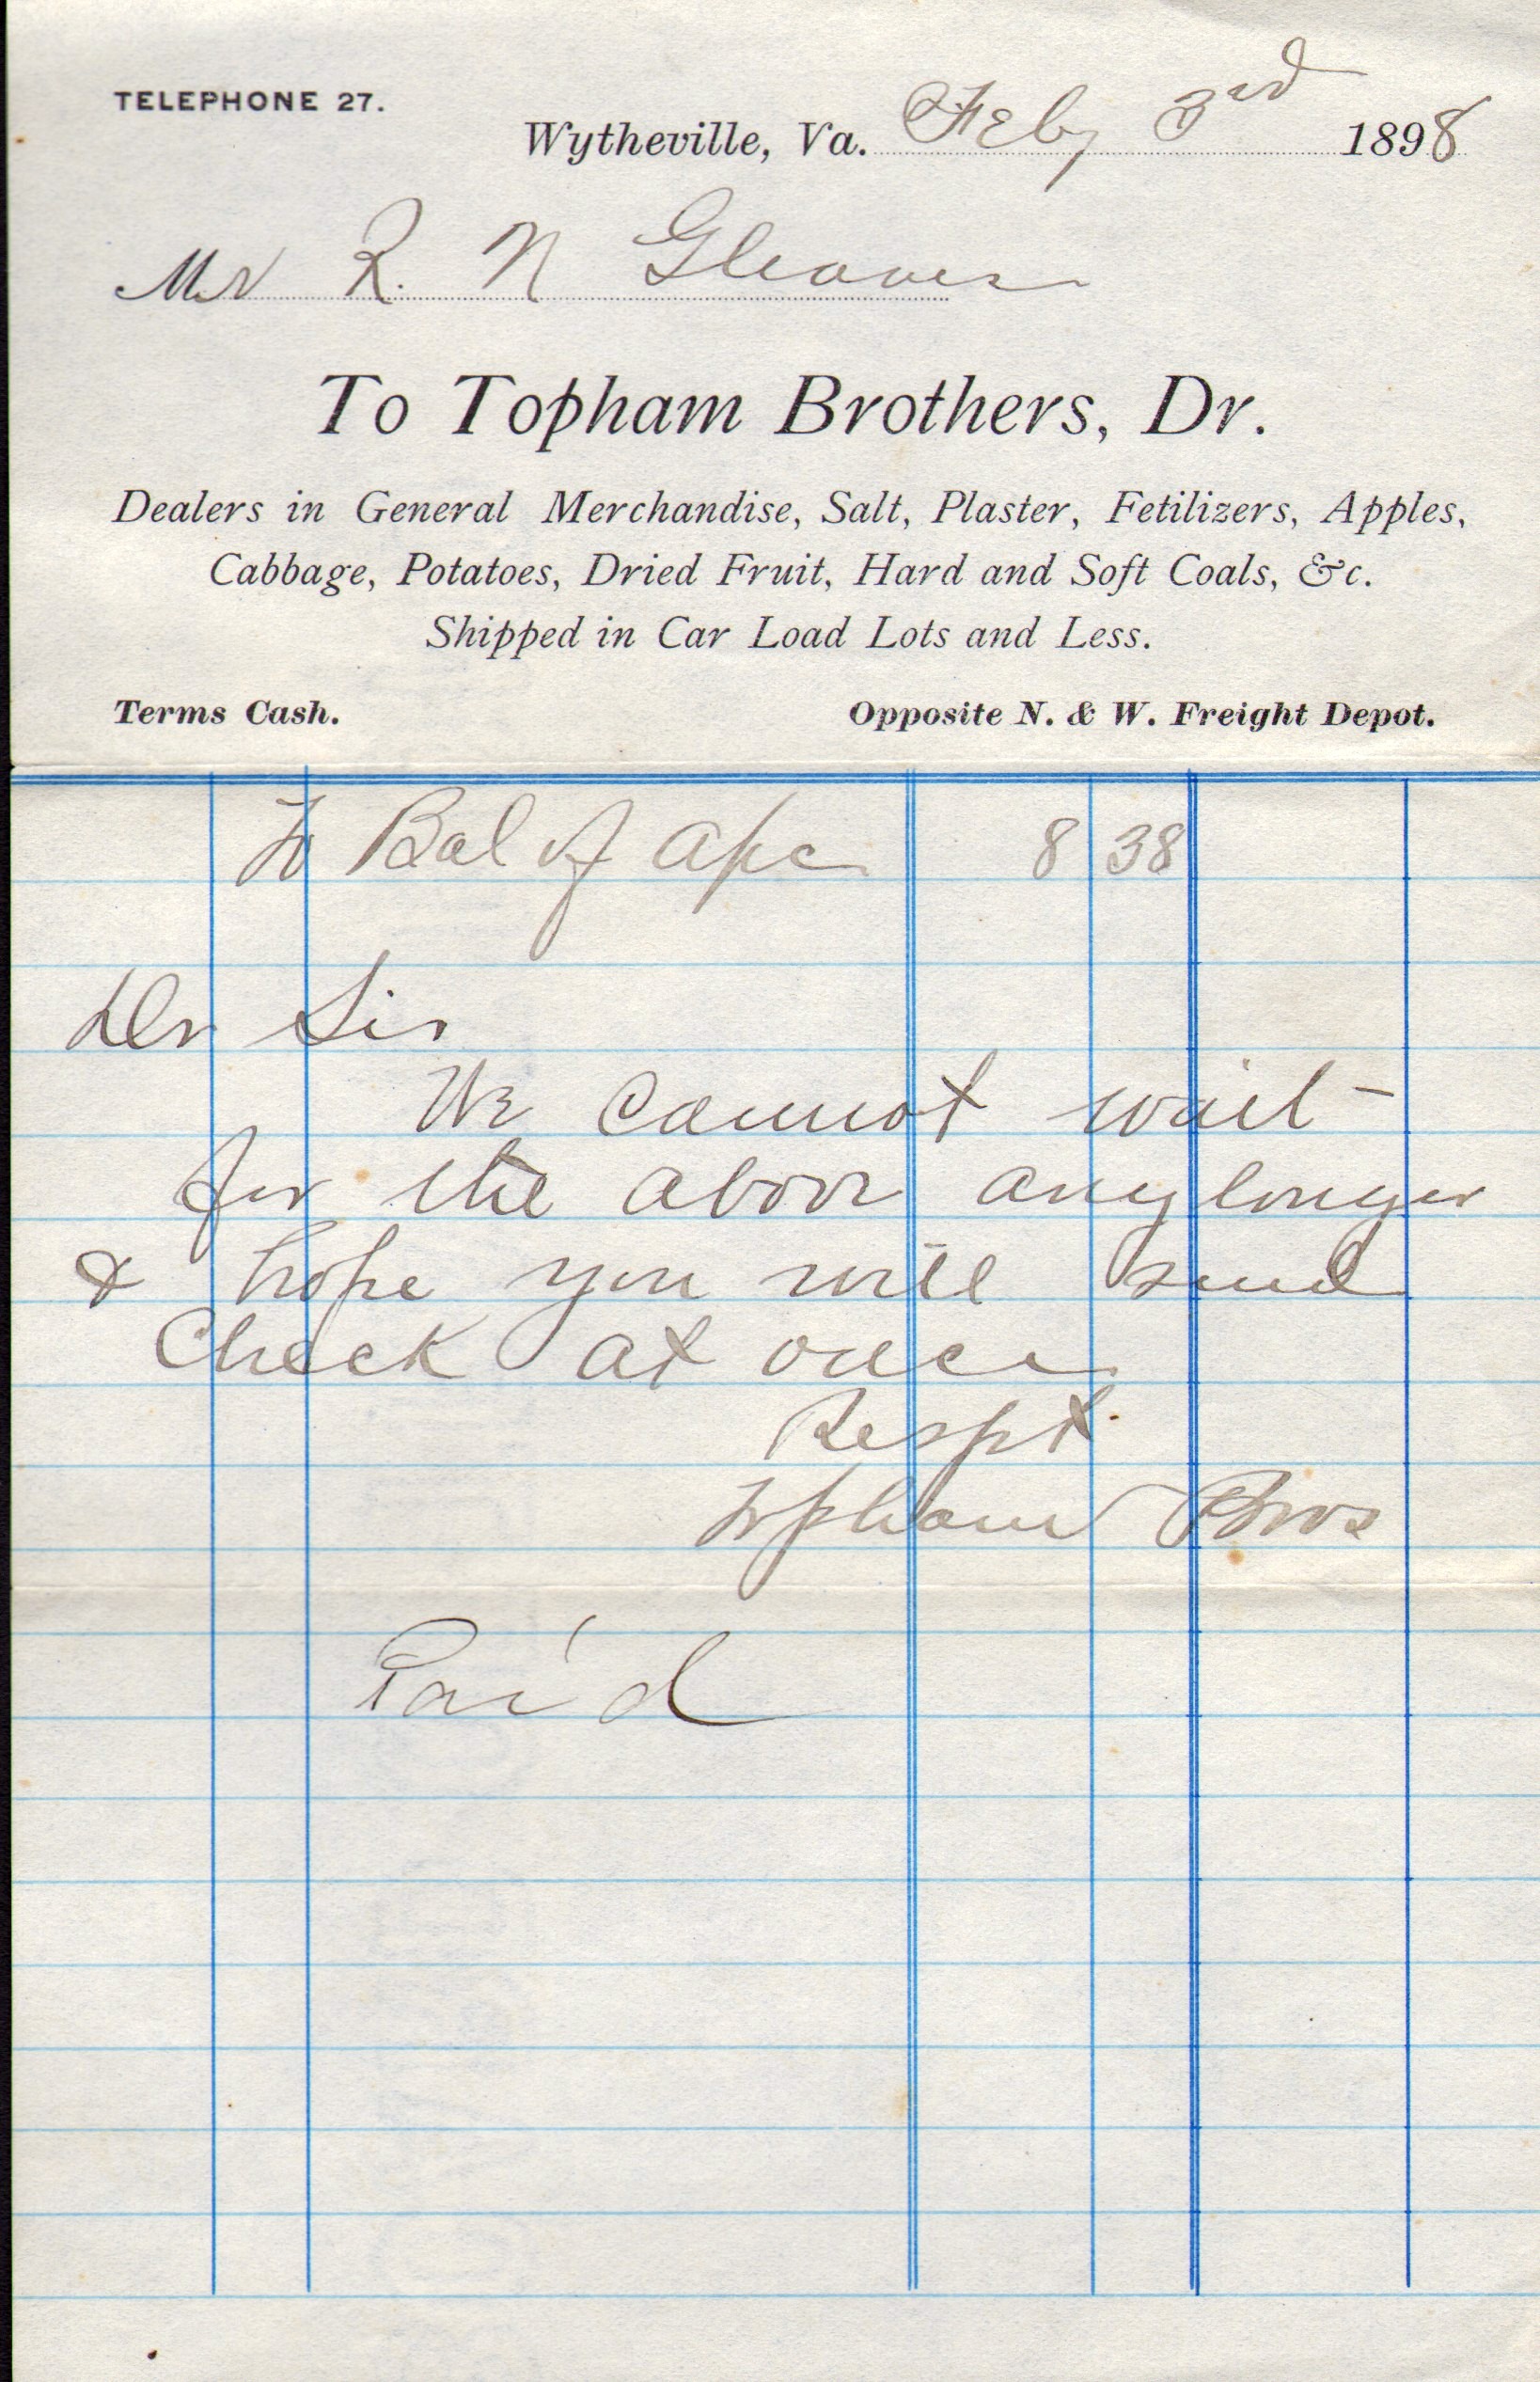 TELEPHONE 27.
Wytheville, Va. Feby 3rd 1898
Mr R. N Gleaves
To Topham Brothers, Dr.
Dealers in General Merchandise, Salt, Plaster, Fetilizers, Apples,
Cabbage, Potatoes, Dried Fruit, Hard and Soft Coals, &c.
Shipped in Car Load Lots and Less.
Terms Cash. Opposite N. & W. Freight Depot.
To Bal of a/c 8 38
Dr Sir
We cannot wait
for the above any longer
& hope you will send
Check at once
Respt.
Topham Bros
Pai'd